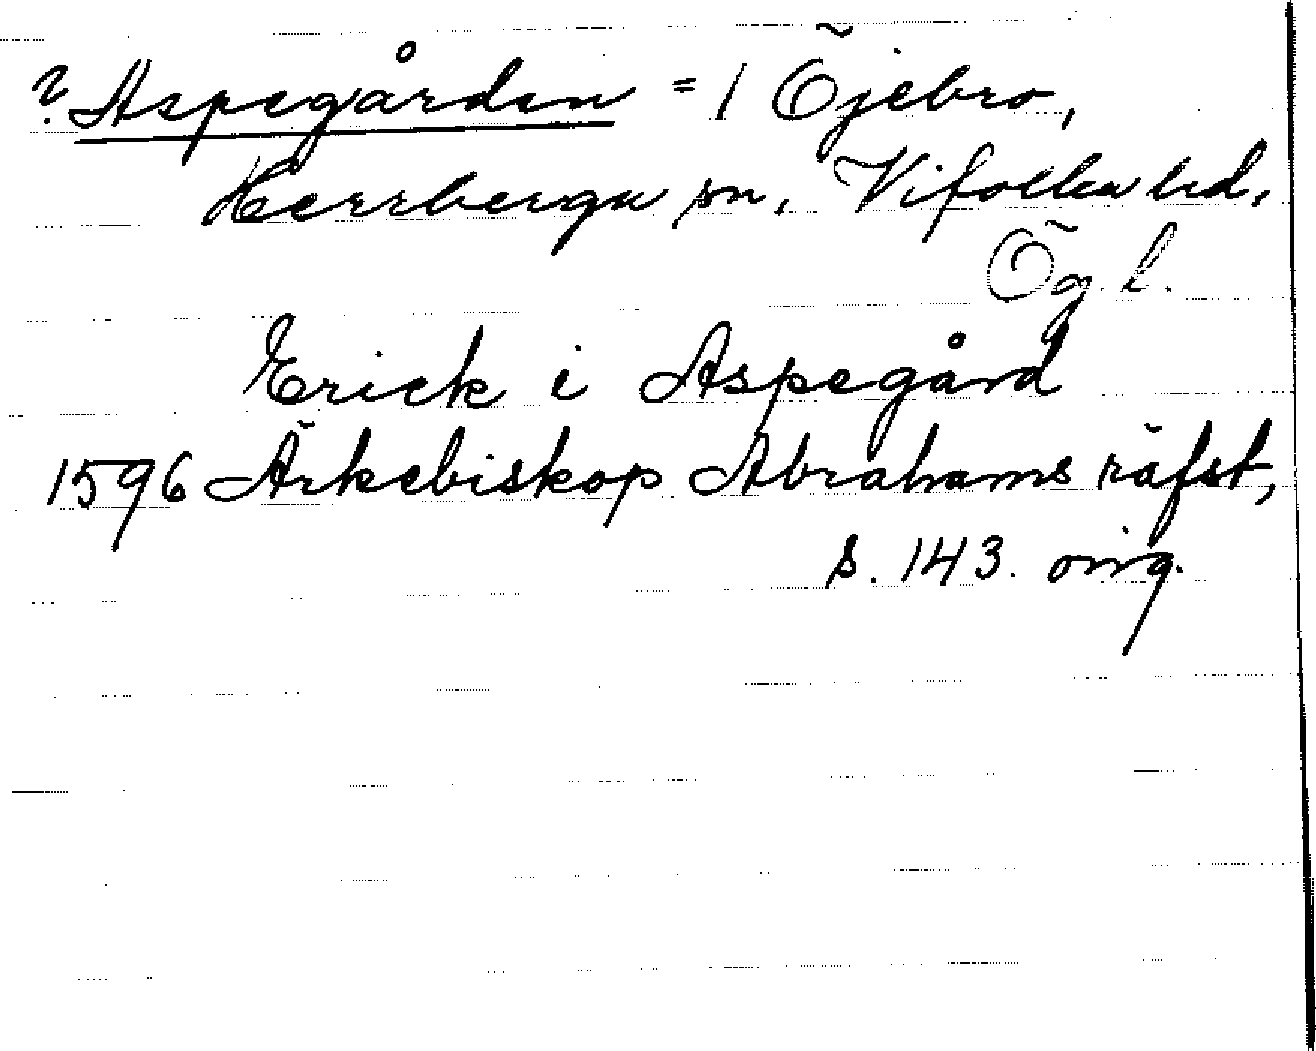 ? Aspegården = 1 Öjebro,
Herrberga sn, Vifolka hd,
Ög. l.
Erick i Aspegård
1596 Ärkebiskop Abrahams räfst,
s. 143. orig.